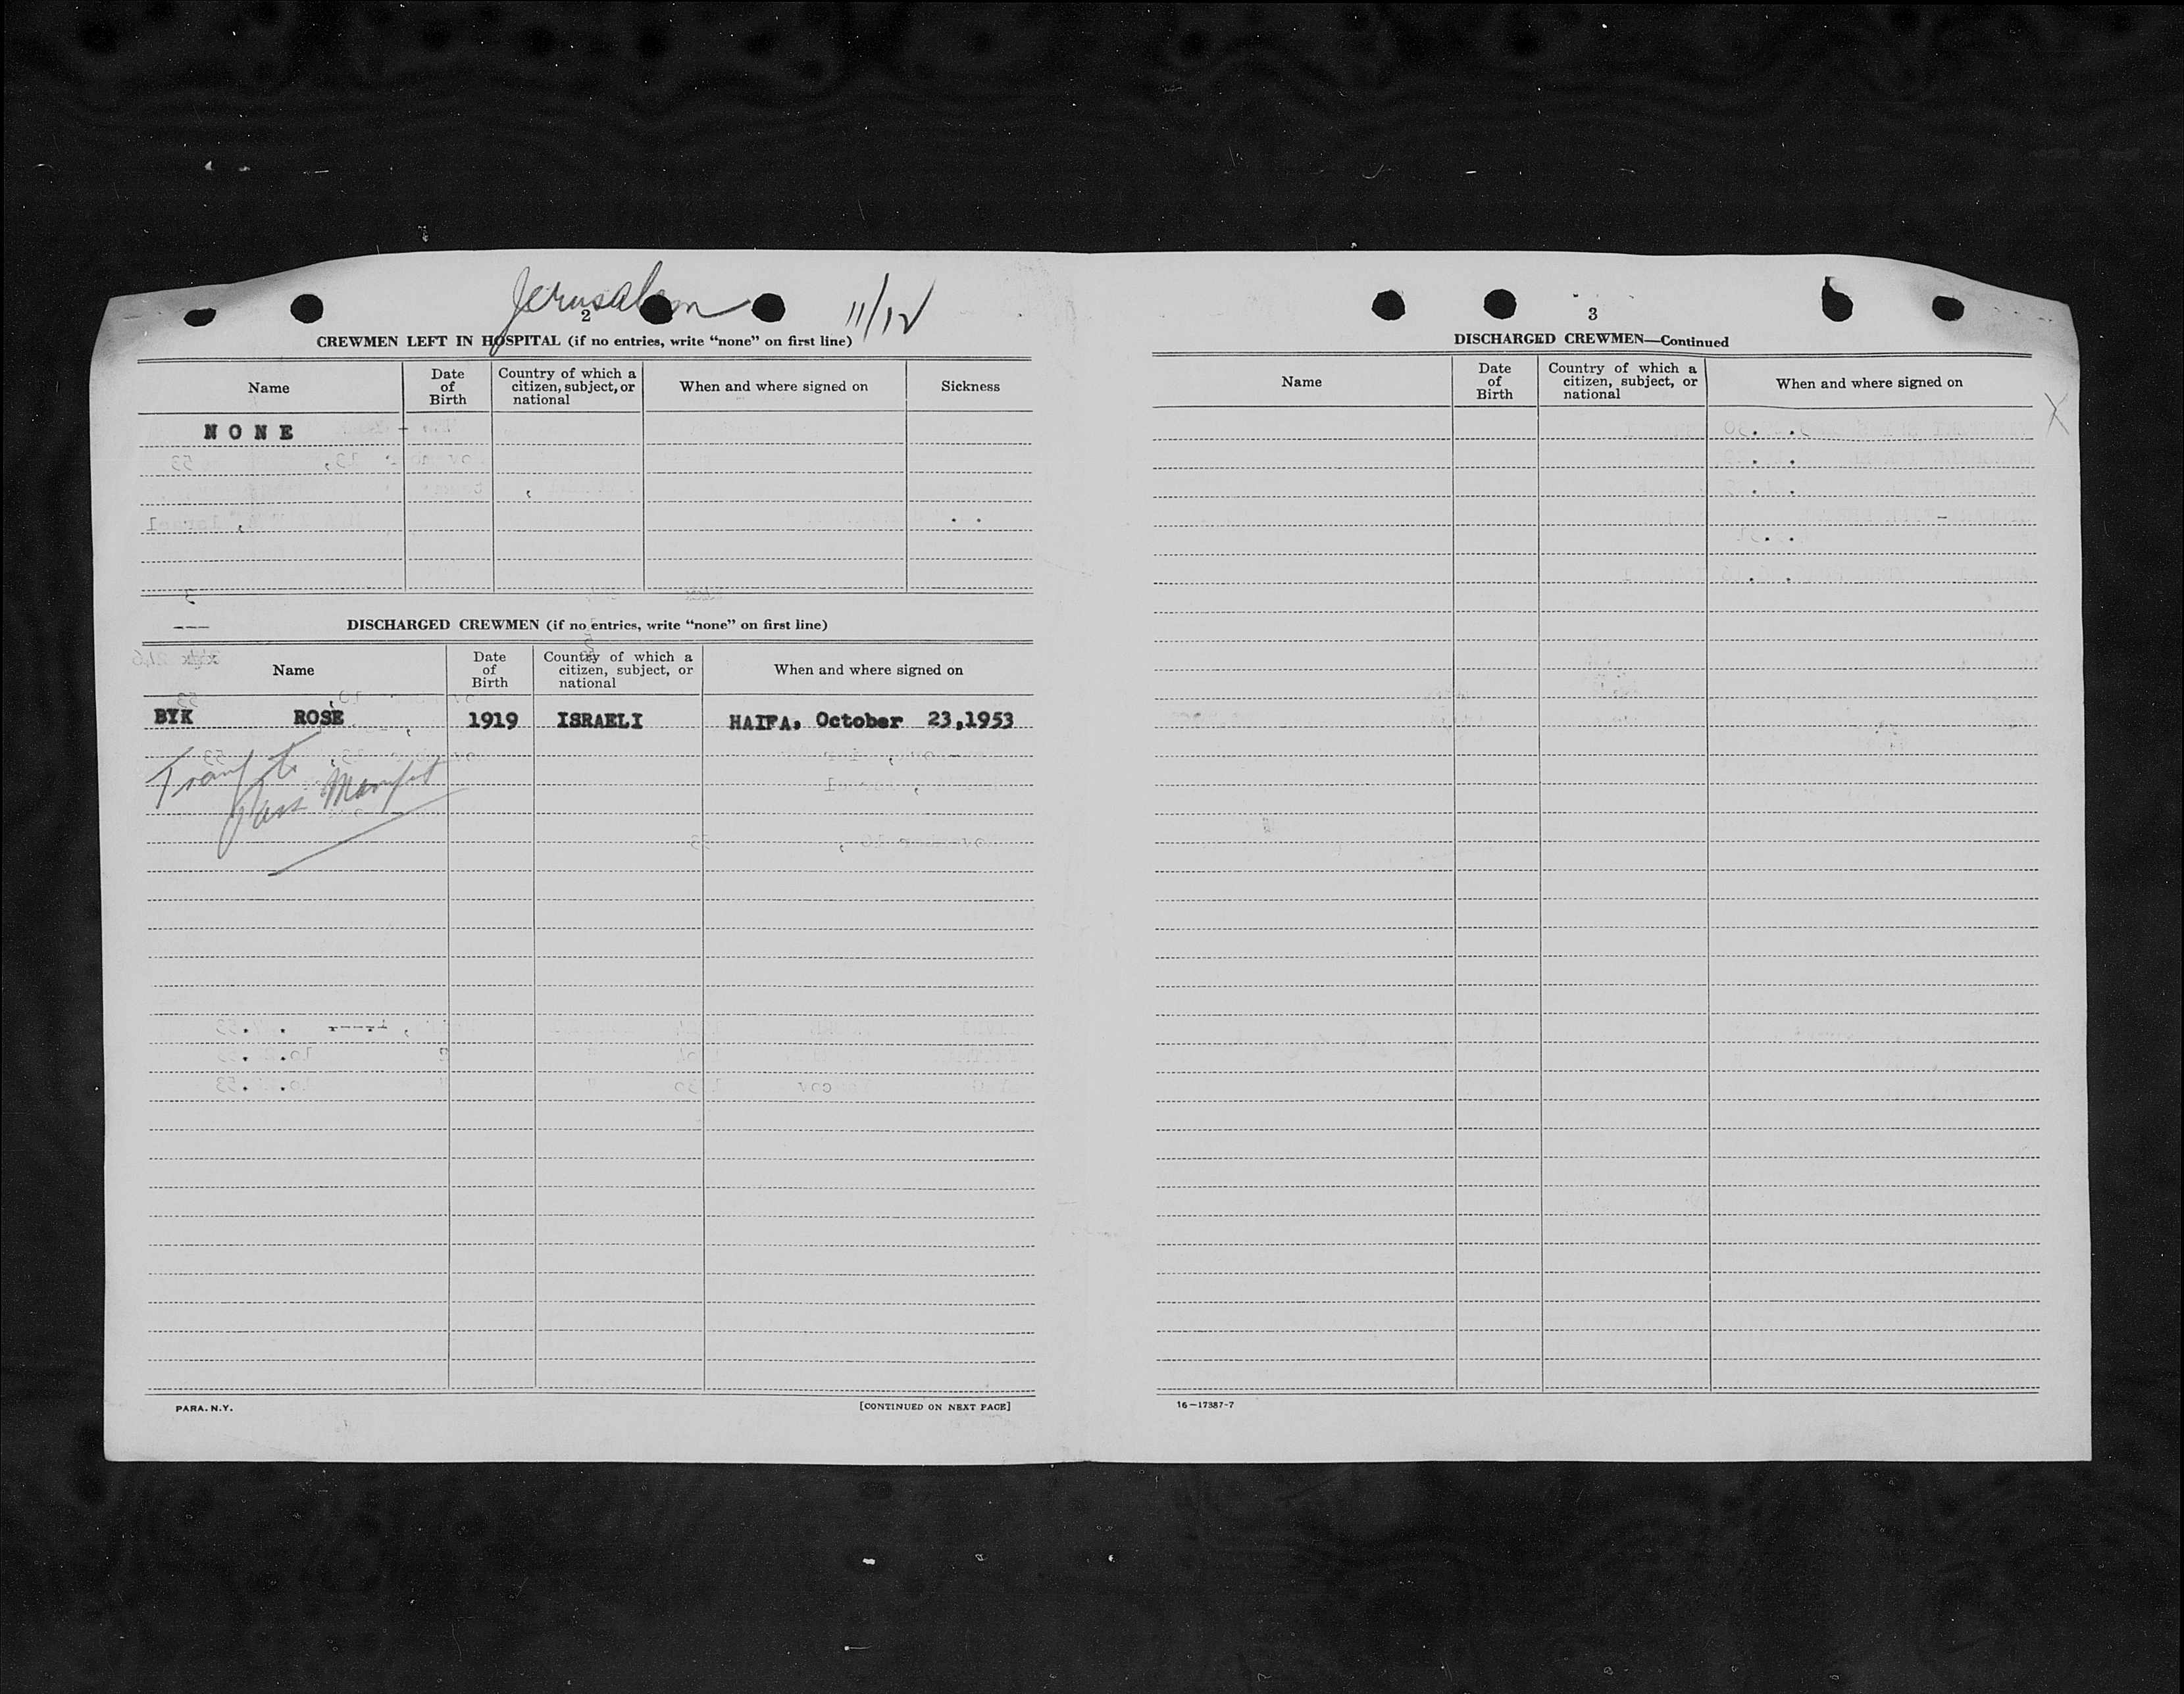 Jerusalem 11/12
2
CREWMEN LEFT IN HOSPITAL (if no entries, write “none” on first line)
Name Date of Birth Country of which a citizen, subject, or national When and where signed on Sickness
NONE
DISCHARGED CREWMEN (if no entries, write “none” on first line)
Name Date of Birth Country of which a citizen, subject, or national When and where signed on
BYK ROSE 1919 ISRAELI HAIFA, October 23,1953
Transf to
Pass Manifest
PARA. N.Y. [CONTINUED ON NEXT PAGE]
3
DISCHARGED CREWMEN—Continued
Name Date of Birth Country of which a citizen, subject, or national When and where signed on
X
16—17387-7